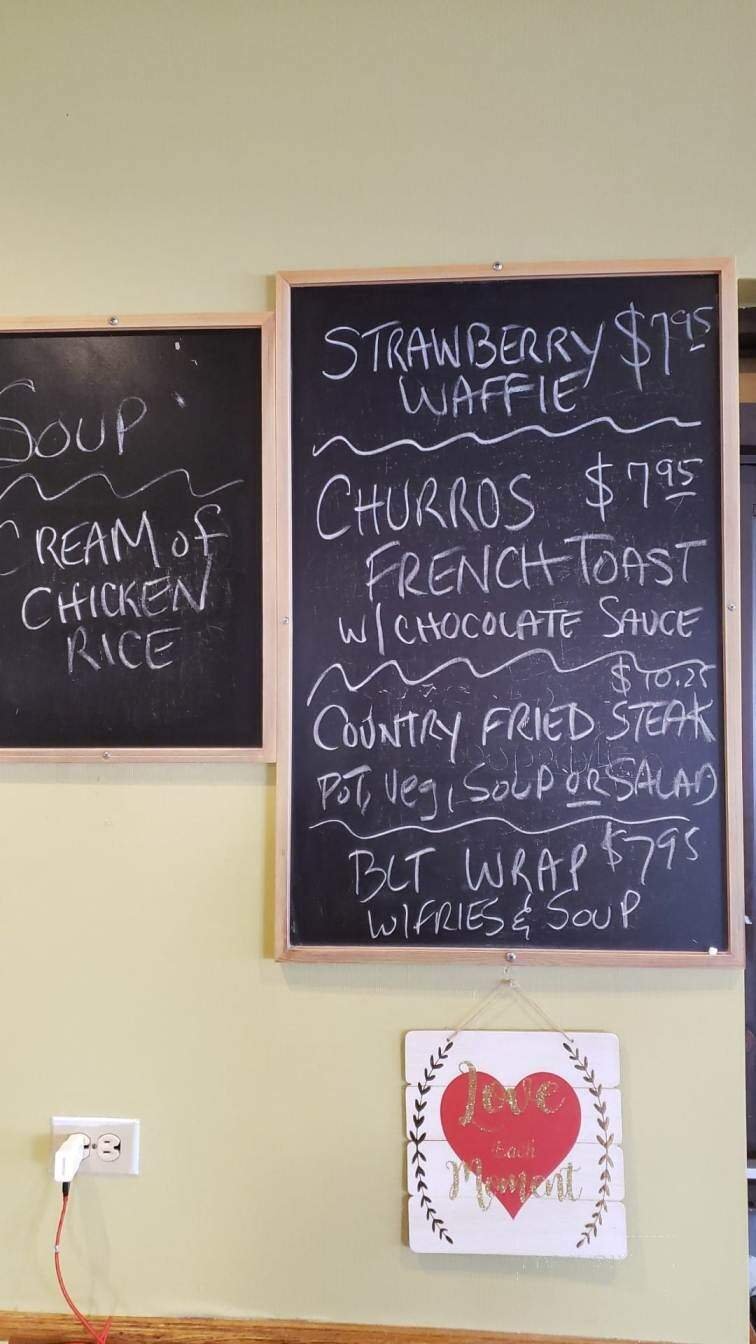 SOUP
CREAM of
CHICKEN
RICE
STRAWBERRY $7.95
WAFFLE
CHURROS $7.95
FRENCH TOAST
W/CHOCOLATE SAUCE
$10.25
COUNTRY FRIED STEAK
POT, Veg, SOUP OR SALAD
BLT WRAP $7.95
W/FRIES & SOUP
Love
Each
Moment